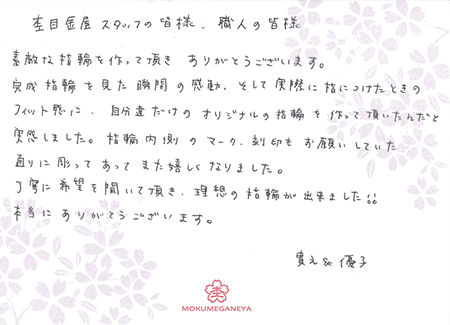 杢目金屋 スタッフの皆様、職人の皆様
素敵な指輪を作って頂き ありがとうございます。
完成指輪を見た瞬間の感動、そして実際に指につけたときの
フィット感に、自分達だけのオリジナルの指輪を作って頂いたんだと
実感しました。指輪内側のマーク、刻印もお願いしていた
通りに彫ってあってまた嬉しくなりました。
丁寧に希望を聞いて頂き、理想の指輪が出来ました!!
本当にありがとうございます。
& 優子
MOKUMEGANEYA